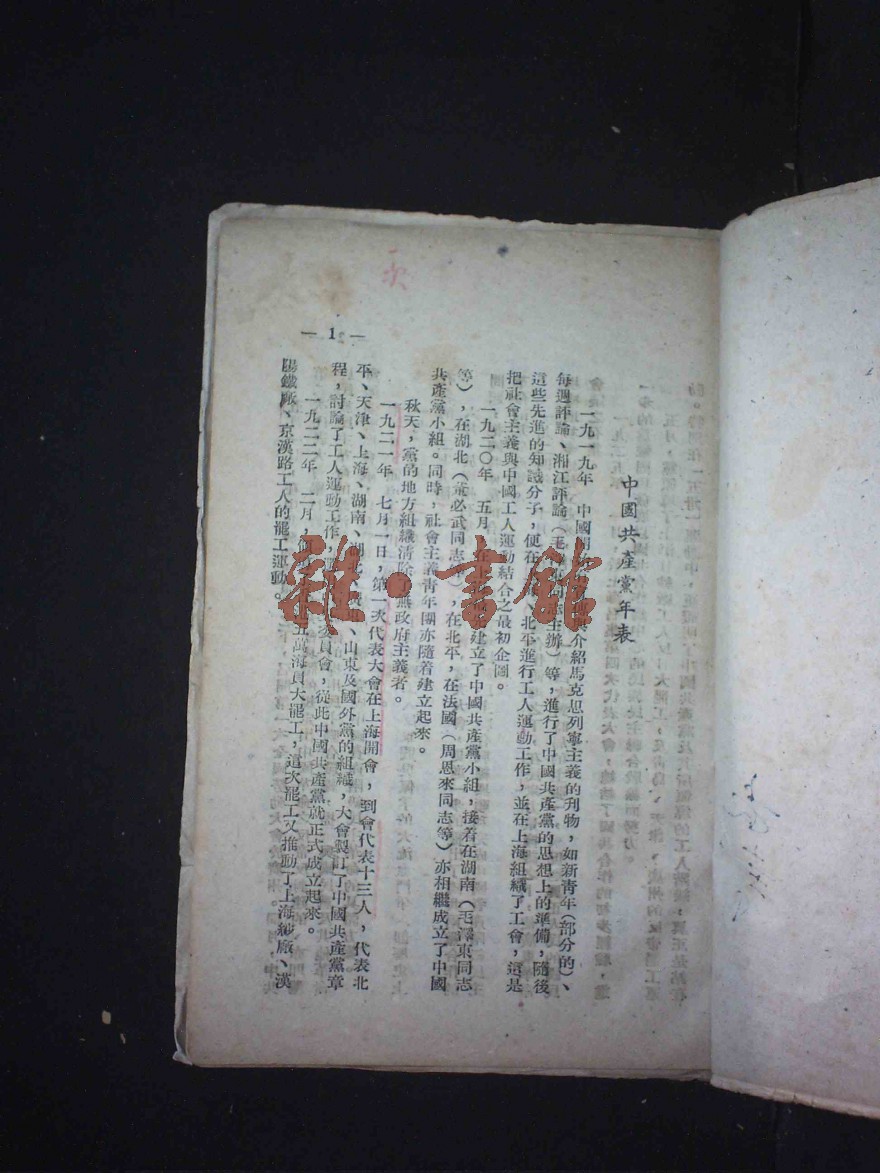 中國共產黨年表
一九一九年 中國 介紹馬克思列寧主義的刊物，如新青年（部分的）、
每週評論、湘江評論（毛 主辦）等，進行了中國共產黨的思想上的準備，隨後
這些先進的知識分子，便在 、北平進行工人運動工作，並在上海組織了工會，這是
把社會主義與中國工人運動結合之最初企圖。
一九二〇年 五月，在上 建立了中國共產黨小組，接着在湖南（毛澤東同志
等），在湖北（董必武同志 ，在北平，在法國（周恩來同志等）亦相繼成立了中國
共產黨小組。同時，社會主義青年團亦隨着建立起來。
秋天，黨的地方組織清除 無政府主義者。
一九二一年 七月一日，第一次代表大會在上海開會，到會代表十三人，代表北
平、天津、上海、湖南、湖北、 、山東及國外黨的組織，大會製訂了中國共產黨章
程，討論了工人運動工作， 委員會，從此中國共產黨就正式成立起來。
一九二二年 二月， 五萬海員大罷工，這次罷工又推動了上海紗廠、漢
陽鐵廠、京漢路工人的罷工運動。
— 1 —
雜·書館